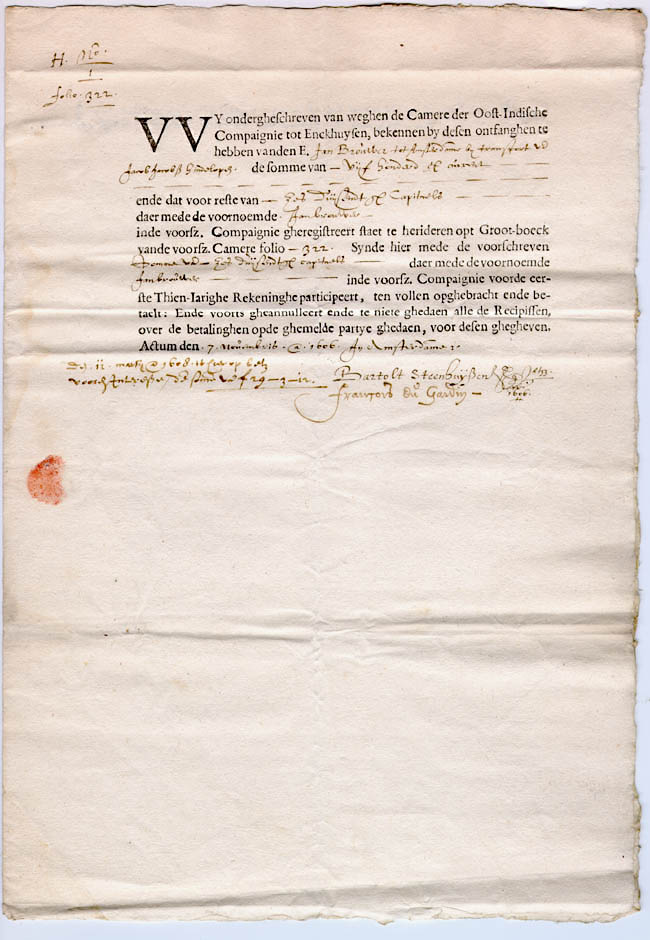 H. No.
1
folio. 322.
VVY ondergheschreven van weghen de Camere der Oost-Indische
Compaignie tot Enckhuysen, bekennen by desen ontfanghen te
hebben vanden E. Jan Brouwer tot Amsterdam
de somme van – vijf hondert
ende dat voor reste van – Capitaels
daer mede de voornoemde Jan brouwer –
inde voorsz. Compaignie gheregistreert staet te herideren opt Groot-boeck
vande voorsz. Camere folio – 322. Synde hier mede de voorschreven
Somme daer mede de voornoemde
Jan brouwer inde voorsz. Compaignie voorde eer-
ste Thien-Iarighe Rekeninghe participeert, ten vollen opghebracht ende be-
taelt: Ende voorts gheannulleert ende te niete ghedaen alle de Recipissen,
over de betalinghen opde ghemelde partye ghedaen, voor desen ghegheven.
Actum den 7. Novemb. 1606. In Amsterdam
1608.
29 – 3 – 12.
Bartolt Steenhuijssen
François du Gardin –
1606